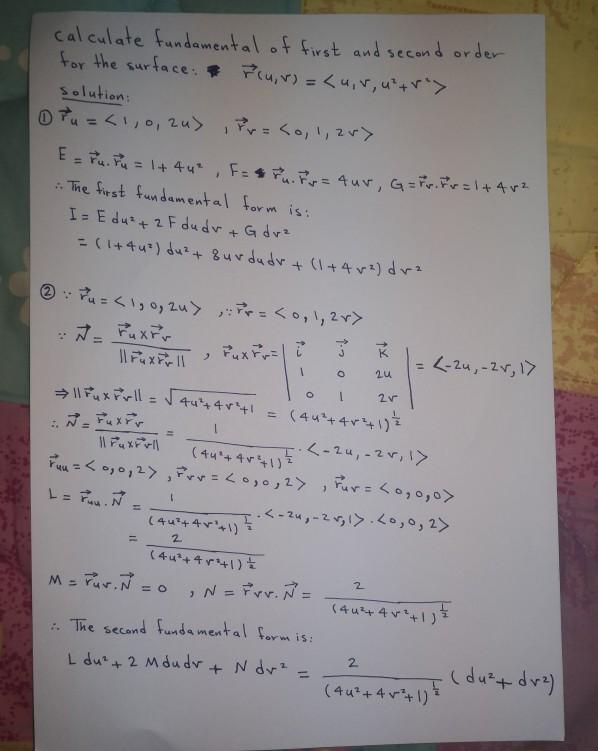 calculate fundamental of first and second order
for the surface: r⃗(u,v) = <u, v, u²+v²>
solution:
① r⃗u = <1, 0, 2u> , r⃗v = <0, 1, 2v>
E = r⃗u . r⃗u = 1+4u² , F = r⃗u . r⃗v = 4uv , G = r⃗v . r⃗v = 1+4v²
∴ The first fundamental form is:
I = E du² + 2 F du dv + G dv²
= (1+4u²) du² + 8uv du dv + (1+4v²) dv²
② ∵ r⃗u = <1, 0, 2u> , ∵ r⃗v = <0, 1, 2v>
∵ N⃗ = (r⃗u x r⃗v) / (||r⃗u x r⃗v||) , r⃗u x r⃗v = | i⃗ j⃗ k⃗ | = <-2u, -2v, 1>
| 1 0 2u |
| 0 1 2v |
⇒ ||r⃗u x r⃗v|| = √(4u²+4v²+1) = (4u²+4v²+1)^(1/2)
∴ N⃗ = (r⃗u x r⃗v) / (||r⃗u x r⃗v||) = 1 / (4u²+4v²+1)^(1/2) . <-2u, -2v, 1>
r⃗uu = <0, 0, 2> , r⃗vv = <0, 0, 2> , r⃗uv = <0, 0, 0>
L = r⃗uu . N⃗ = 1 / (4u²+4v²+1)^(1/2) . <-2u, -2v, 1> . <0, 0, 2>
= 2 / (4u²+4v²+1)^(1/2)
M = r⃗uv . N⃗ = 0 , N = r⃗vv . N⃗ = 2 / (4u²+4v²+1)^(1/2)
∴ The second fundamental form is:
L du² + 2 M du dv + N dv² = 2 / (4u²+4v²+1)^(1/2) (du² + dv²)